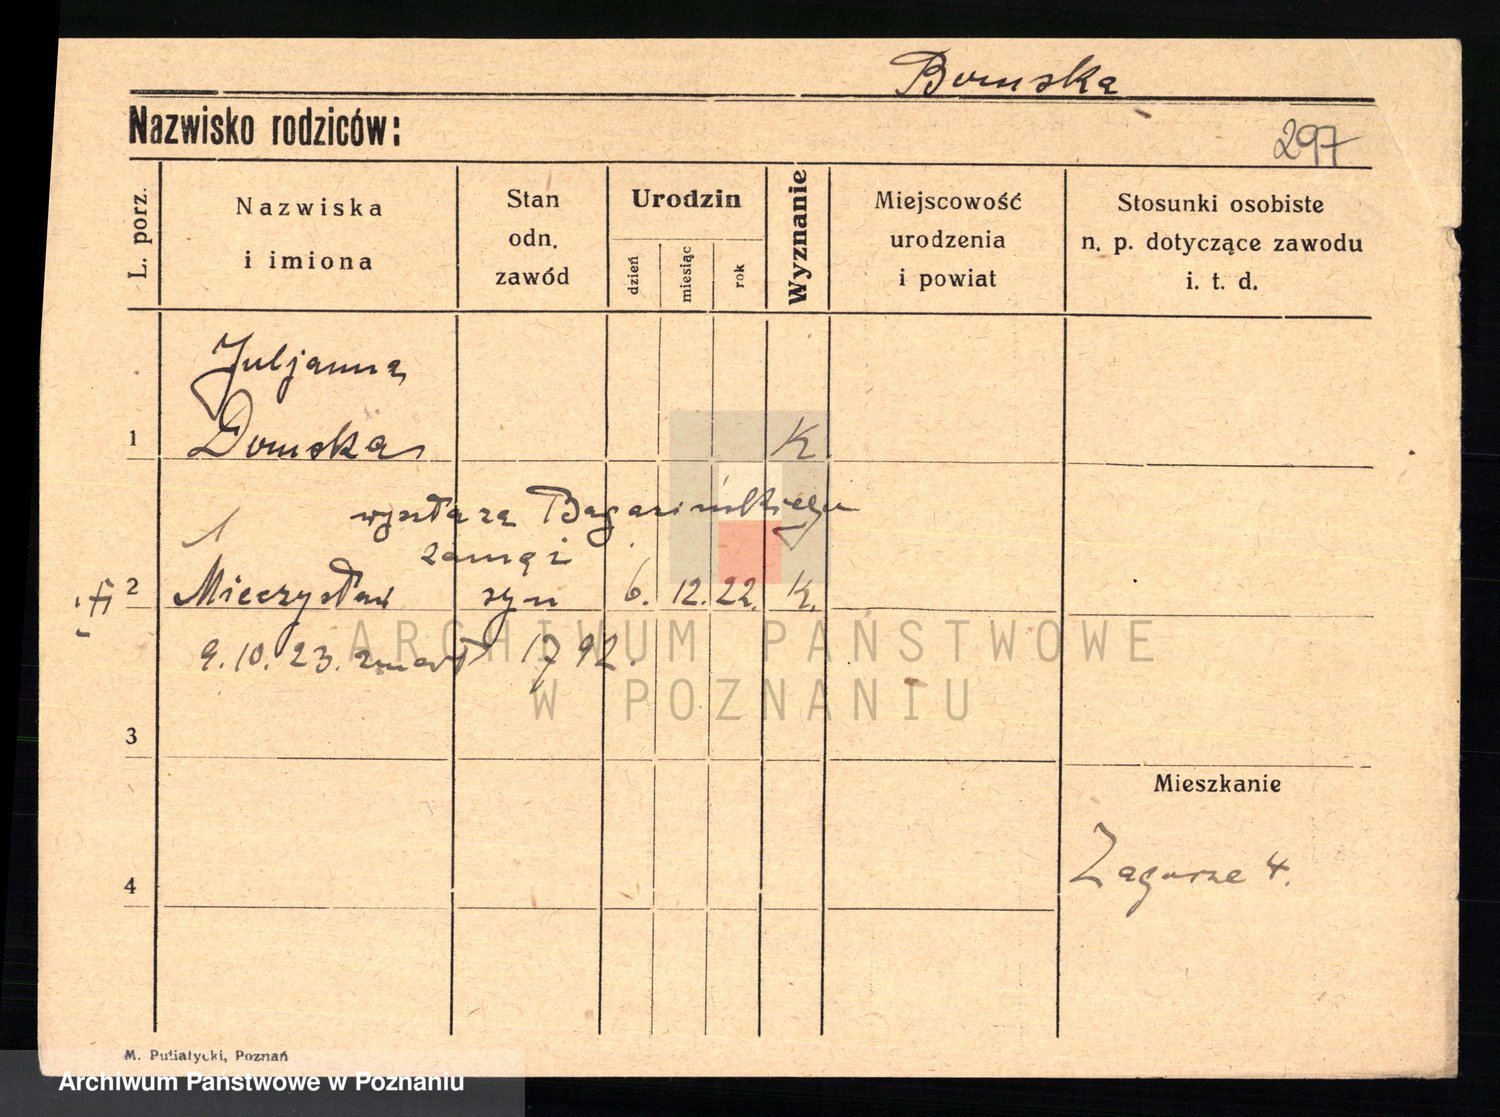 Bomska
Nazwisko rodziców:
297
L. porz.
Nazwiska
i imiona
Stan
odn.
zawód
Urodzin
dzień
miesiąc
rok
Wyznanie
Miejscowość
urodzenia
i powiat
Stosunki osobiste
n. p. dotyczące zawodu
i. t. d.
Juljanna
1 Domska K
wyszła za Bagazińskiego
zamąż
2 Mieczysław syn 6. 12. 22. K.
9. 10. 23. zmarł 1792.
ARCHIWUM PAŃSTWOWE
W POZNANIU
3
Mieszkanie
Zagórze 4.
4
M. Putiatycki, Poznań
Archiwum Państwowe w Poznaniu